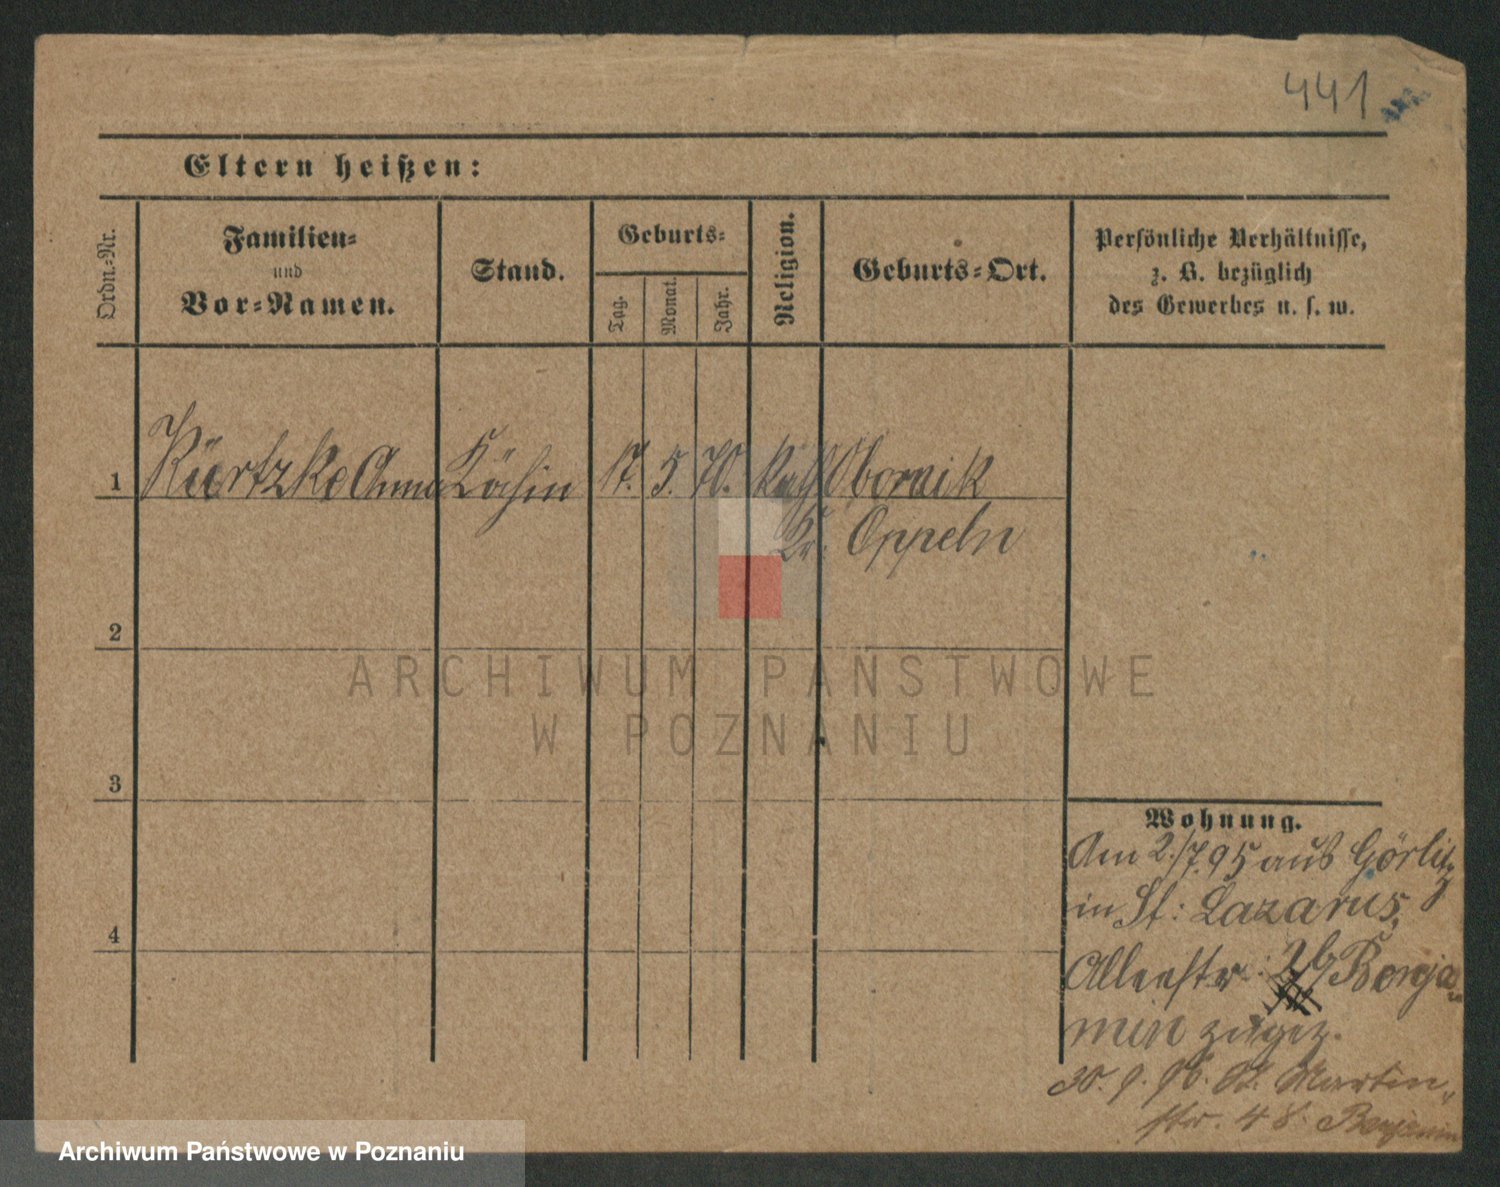 441
Eltern heißen:
Ordn.-Nr.
Familien-
und
Vor-Namen.
Stand.
Geburts-
Tag.
Monat.
Jahr.
Religion.
Geburts-Ort.
Persönliche Verhältnisse,
z. B. bezüglich
des Gewerbes u. s. w.
1 Kürtzke Anna Köchin 17. 5. 70. kath Obornik
Kr. Oppeln
2
3
4
Wohnung.
Am 2./7.95 aus Görlitz
in St: Lazarus,
Alleestr: Benja-
min zugez.
30. 9. 96. St. Martin-
str. 48 Benjamin
ARCHIWUM PAŃSTWOWE
W POZNANIU
Archiwum Państwowe w Poznaniu